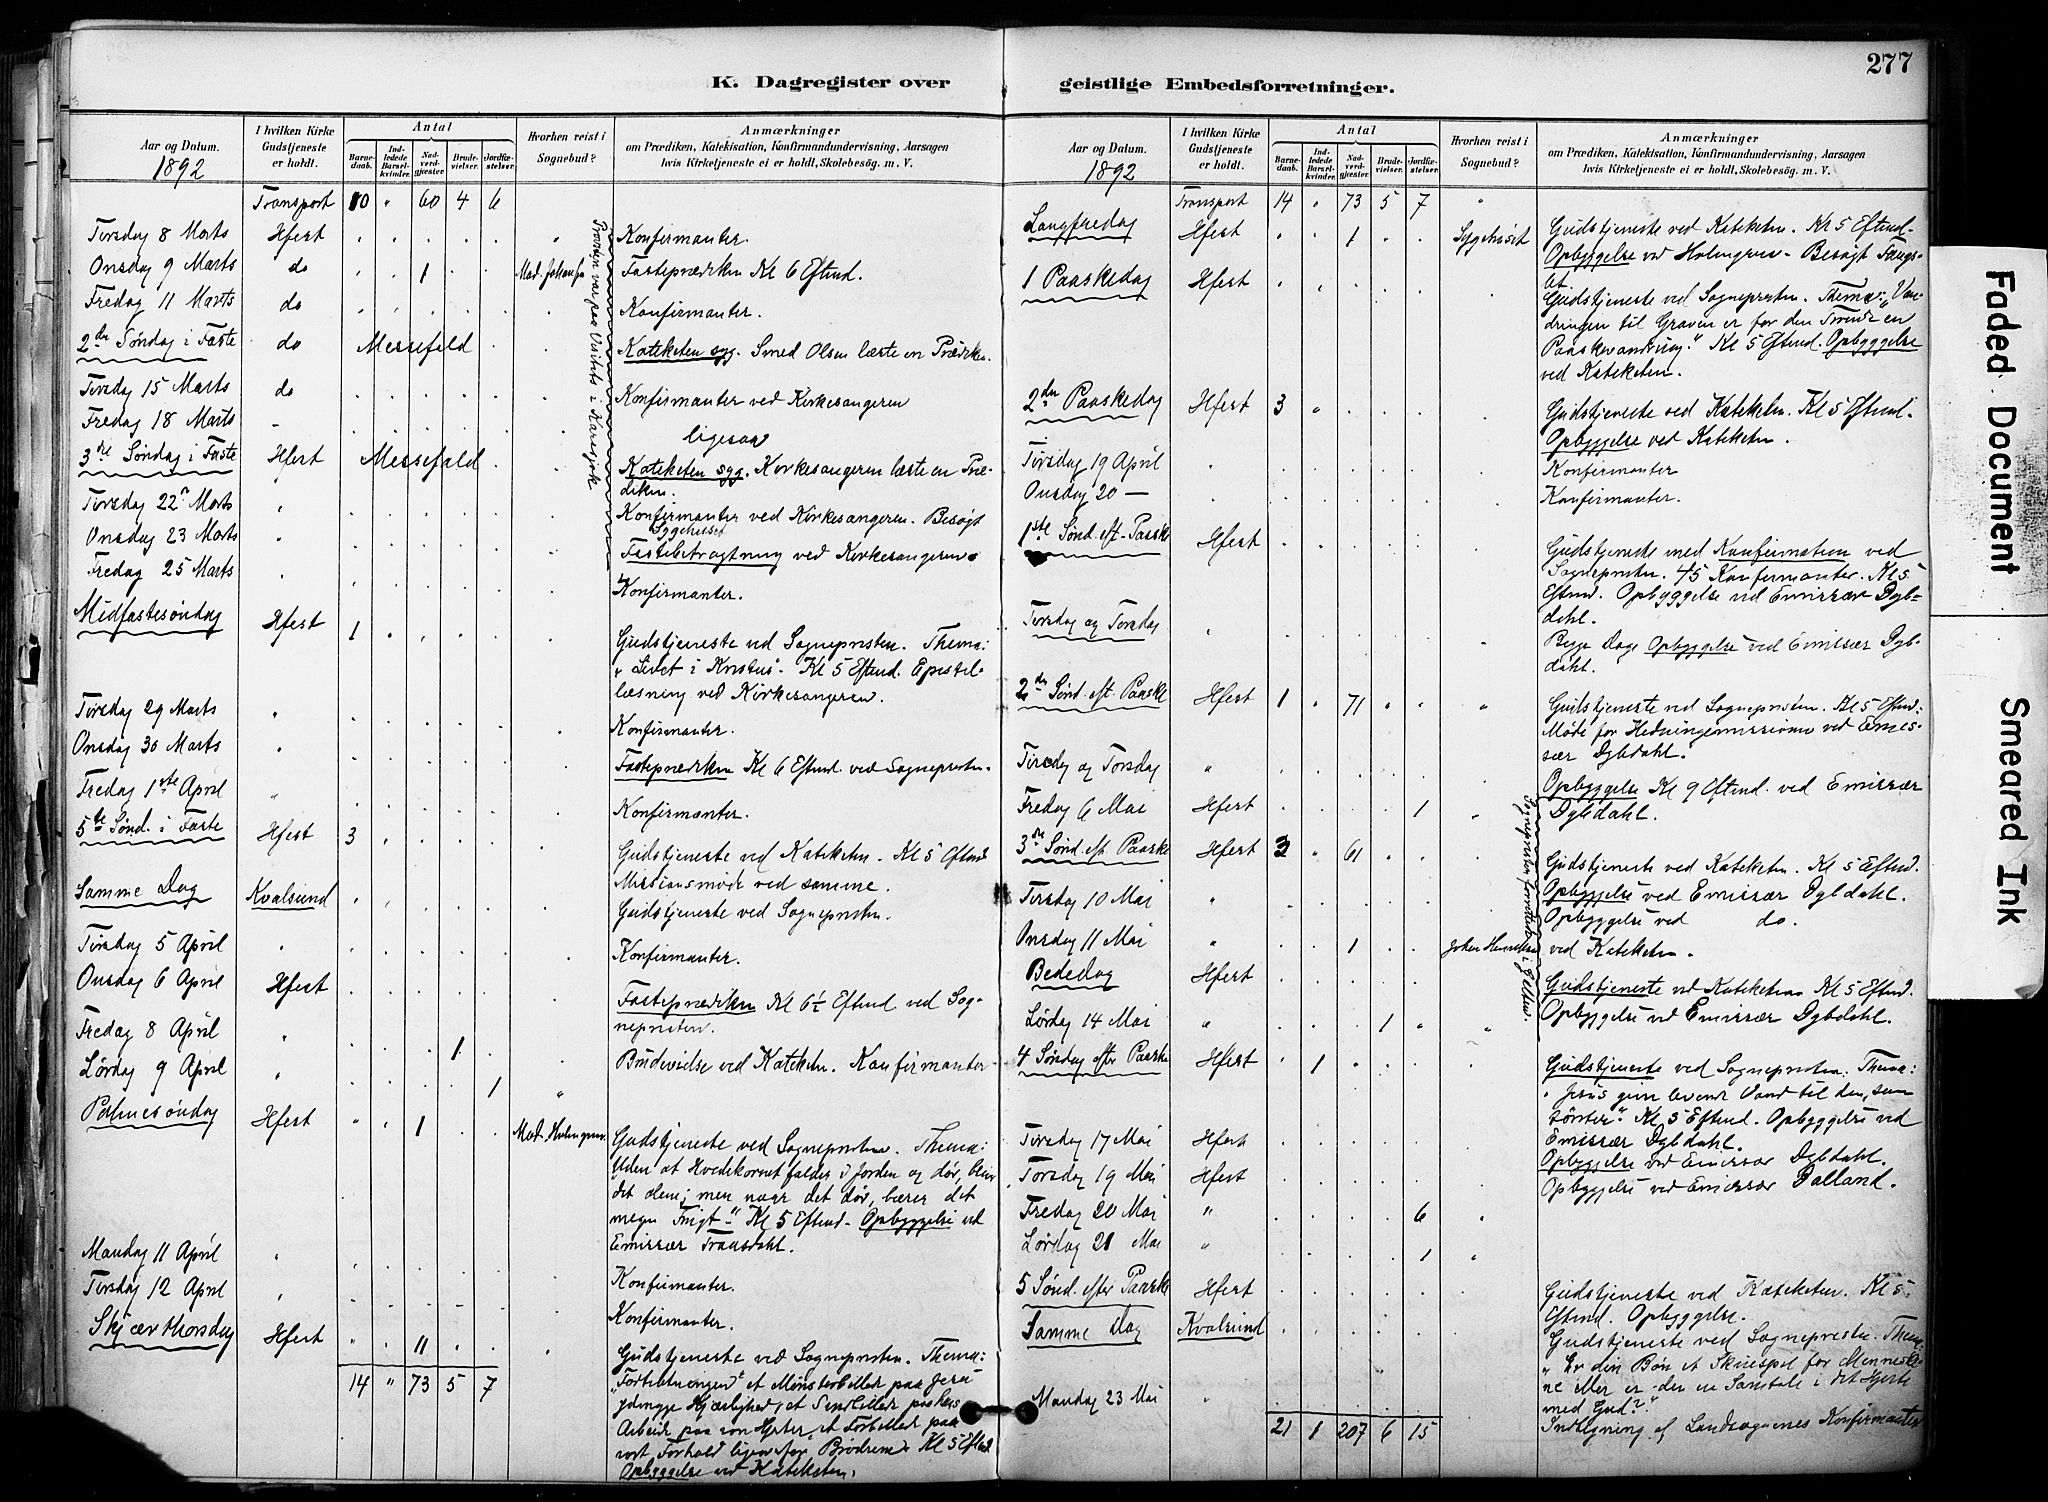 277
K. Dagregister over geistlige Embedsforretninger.
Aar og Datum.
1892
I hvilken Kirke Gudstjeneste er holdt.
Antal
Barnedaab.
Indledede Barselkvinder.
Nadverdgjester.
Brudevielser.
Jordfæstelser.
Hvorhen reist i Sognebud?
Anmærkninger
om Prædiken, Katekisation, Konfirmandundervisning, Aarsagen
hvis Kirketjeneste ei er holdt, Skolebesøg. m. V.
Transport 10 " 60 4 6
Tirsdag 8 Marts Hfest Konfirmanter.
Onsdag 9 Marts do 1 Fasteprædiken Kl 6 Eftmd.
Fredag 11 Marts do Konfirmanter.
2den Søndag i Faste do Messefald Kateketen syg. Smed Olsen læste en Prædiken.
Tirsdag 15 Marts do Konfirmanter ved Kirkesangeren
Fredag 18 Marts - ligesaa
3die Søndag i Faste Hfest Messefald Kateketen syg. Kirkesangeren læste en Præ-
diken.
Provsten var paa Visitats i Karasjok
Tirsdag 22 Marts " Konfirmanter ved Kirkesangeren. Besøgt
Sygehuset
Onsdag 23 Marts " Fastebetragtning ved Kirkesangeren
Fredag 25 Marts " Konfirmanter.
Midfastesøndag Hfest 1 Gudstjeneste ved Sognepresten. Thema:
"Livet i Kristus". Kl 5 Eftmd. Epistel-
læsning ved Kirkesangeren.
Tirsdag 29 Marts " Konfirmanter.
Onsdag 30 Marts " Fasteprædiken Kl 6 Eftmd ved Sognepresten.
Fredag 1ste April " Konfirmanter.
5te Sønd. i Faste Hfest 3 Gudstjeneste ved Kateketen. Kl 5 Eftmd
Missionsmøde ved samme.
Samme Dag Kvalsund Gudstjeneste ved Sognepresten.
Tirsdag 5 April " Konfirmanter.
Onsdag 6 April Hfest Fasteprædiken Kl 6½ Eftmd ved Sog-
nepresten.
Fredag 8 April " 1 Brudevielse ved Kateketen. Konfirmanter
Lørdag 9 April " 1 "
Palmesøndag Hfest " " 1 Mad. Holmgren. Gudstjeneste ved Sognepresten. Thema:
Uden at Hvedekornet falder i Jorden og dør, bliver
det alene; men naar det dør, bærer det
megen Frugt". Kl 5 Eftmd. Opbyggelse ved
Emissær Traasdahl.
Mandag 11 April " Konfirmanter.
Tirsdag 12 April " Konfirmanter.
Skjærthorsdag Hfest " 11 Gudstjeneste ved Sognepresten. Thema:
"Fodtvætningen" et Mønsterbillede paa Jesu
ydmyge Kjærlighed, et Sindbillede paa hans
Arbeide paa vor Hjerter, et Forbillede paa
vort Forhold ligeoverfor Brødrene. Kl 5 Eftmd
Opbyggelse ved Kateketen.
14 " 73 5 7
Aar og Datum.
1892
I hvilken Kirke Gudstjeneste er holdt.
Antal
Barnedaab.
Indledede Barselkvinder.
Nadverdgjester.
Brudevielser.
Jordfæstelser.
Hvorhen reist i Sognebud?
Anmærkninger
om Prædiken, Katekisation, Konfirmandundervisning, Aarsagen
hvis Kirketjeneste ei er holdt, Skolebesøg. m. V.
Transport 14 " 73 5 7 "
Langfredag Hfest 1 Sygehuset Gudstjeneste ved Kateketen. Kl 5 Eftmd.
Opbyggelse ved Holmgren. Besøgt Fængs-
let.
1 Paaskedag Hfest Gudstjeneste ved Sognepresten. Thema: "Van-
dringen til Graven er for den Troende en
Paaskevandring." Kl 5 Eftmd. Opbyggelse
ved Kateketen.
2den Paaskedag Hfest 3 Gudstjeneste ved Kateketen. Kl 5 Eftmd.
Opbyggelse ved Kateketen.
Tirsdag 19 April Konfirmanter
Onsdag 20 — Konfirmanter.
1ste Sønd. eft. Paaske Hfest Gudstjeneste med Konfirmation ved
Sognepresten. 45 Konfirmanter. Kl 5
Eftmd. Opbyggelse ved Emissær Dyb-
dahl.
Tirsdag og Torsdag " Begge Dage Opbyggelse ved Emissær Dyb-
dahl.
2den Sønd. eft. Paaske Hfest 1 " 71 " " " Gudstjeneste ved Sognepresten. Kl 5 Eftmd:
Møde for Hedningemissionen ved Emis-
sær Dybdahl.
Tirsdag og Torsdag " Opbyggelse Kl 9 Eftmd. ved Emissær
Dybdahl.
Fredag 6 Mai Hfest 1 "
3die Sønd. eft. Paaske Hfest 3 " 61 Gudstjeneste ved Kateketen. Kl 5 Eftmd.
Opbyggelse ved Emissær Dybdahl.
Tirsdag 10 Mai " Opbyggelse ved do.
Onsdag 11 Mai " 1 ved Kateketen.
Bededag Hfest Gudstjeneste ved Kateketen Kl 5 Eftmd.
Opbyggelse ved Emissær Dybdahl.
Lørdag 14 Mai " 1 " "
4 Søndag efter Paaske Hfest 1 Gudstjeneste ved Sognepresten: Thema:
"Jesus giver levende Vand til den, som
tørster". Kl 5 Eftmd. Opbyggelse ved
Emissær Dybdahl.
Tirsdag 17 Mai Hfest Opbyggelse ved Emissær Dybdahl.
Torsdag 19 Mai Hfest Opbyggelse ved Emissær Dalland.
Fredag 20 Mai " 6 "
Lørdag 21 Mai " 1 "
5 Sønd. efter Paaske Hfest Gudstjeneste ved Kateketen. Kl 5
Eftmd. Opbyggelse.
Samme Dag Kvalsund Gudstjeneste ved Sognepresten. Thema:
"Er din Bøn et Skuespil for Menneske-
ne eller er den en Samtale i dit Hjerte
med Gud?"
Mandag 23 Mai " Indtegning af Landsognenes Konfirmanter
21 1 207 6 15
Faded Document
Smeared Ink